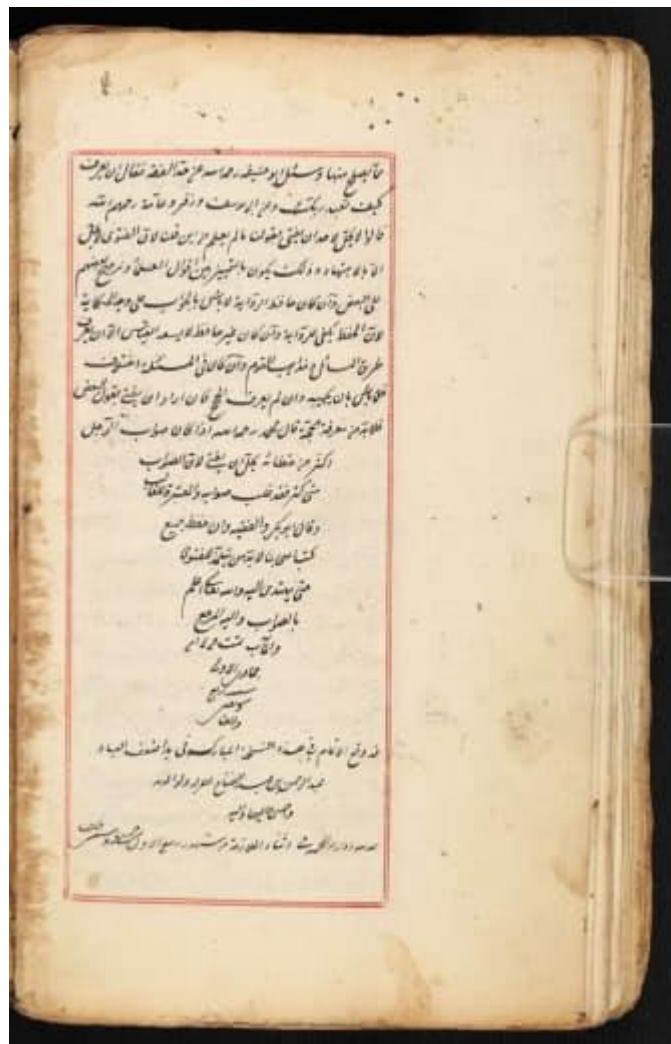 منها وسئل ابو حنيفة رحمه الله عن حد الفقه فقال ان يعرف
كيف تعبد ربك وعن ابى يوسف وزفر وعافية رحمهم الله
قالوا لا يحل لاحد ان يفتى بقولنا ما لم يعلم من اين قلنا لان الفتوى لا يحل
الا بالاجتهاد وذلك يكون بالتمييز بين اقوال العلماء وترجيح بعضهم
على البعض وان كان حافظ الرواية لا بأس بالجواب على وجه الحكاية
لان الحفظ يكفى للرواية وان كان غير حافظ لا يسعه القياس الا ان يعرف
طرق المسائل ومذهب القوم وان كان فى المسئلة اختلاف
فلا بأس بان يجيب وان لم يعرف الحجج فان اراد ان يفتى بقول البعض
فلا بد من معرفة حجته قال محمد رحمه الله اذا كان صواب الرجل
اكثر من خطائه يحل ان يفتى لان الصواب
متى كثر فقد غلب صوابه والعبرة للغالب
وقال ابو بكر والفقيه وان حفظ جميع
كتب اصحابنا لا بد من للفتوى
حتى يهتدى اليه والله تعالى اعلم
بالصواب واليه المرجع
والمآب تمت
جمادى الاولى
والف
قد وقع الاتمام فى هذه النسخة المباركة فى يد اضعف العباد
عبد الرحمن بن عبد غفر له ولوالديه
واحسن اليهما واليه
ربيع الاول